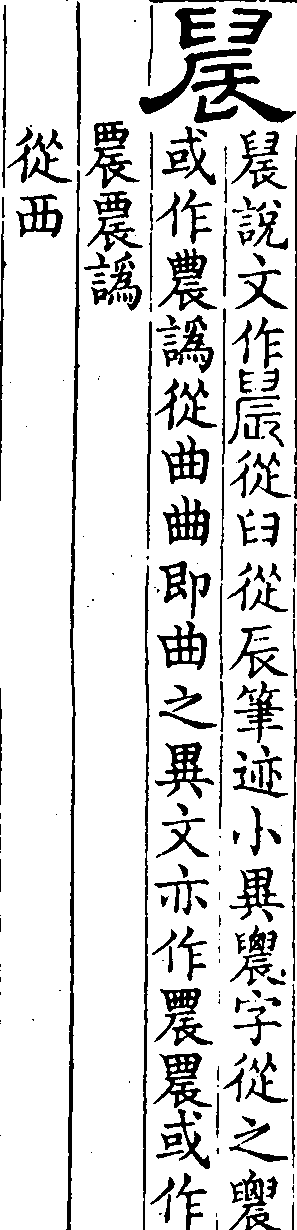 䢅
䢅說文作䢅從臼從辰筆迹小異農字從之農
或作農譌從曲曲即曲之異文亦作農農或作
農農譌
從西